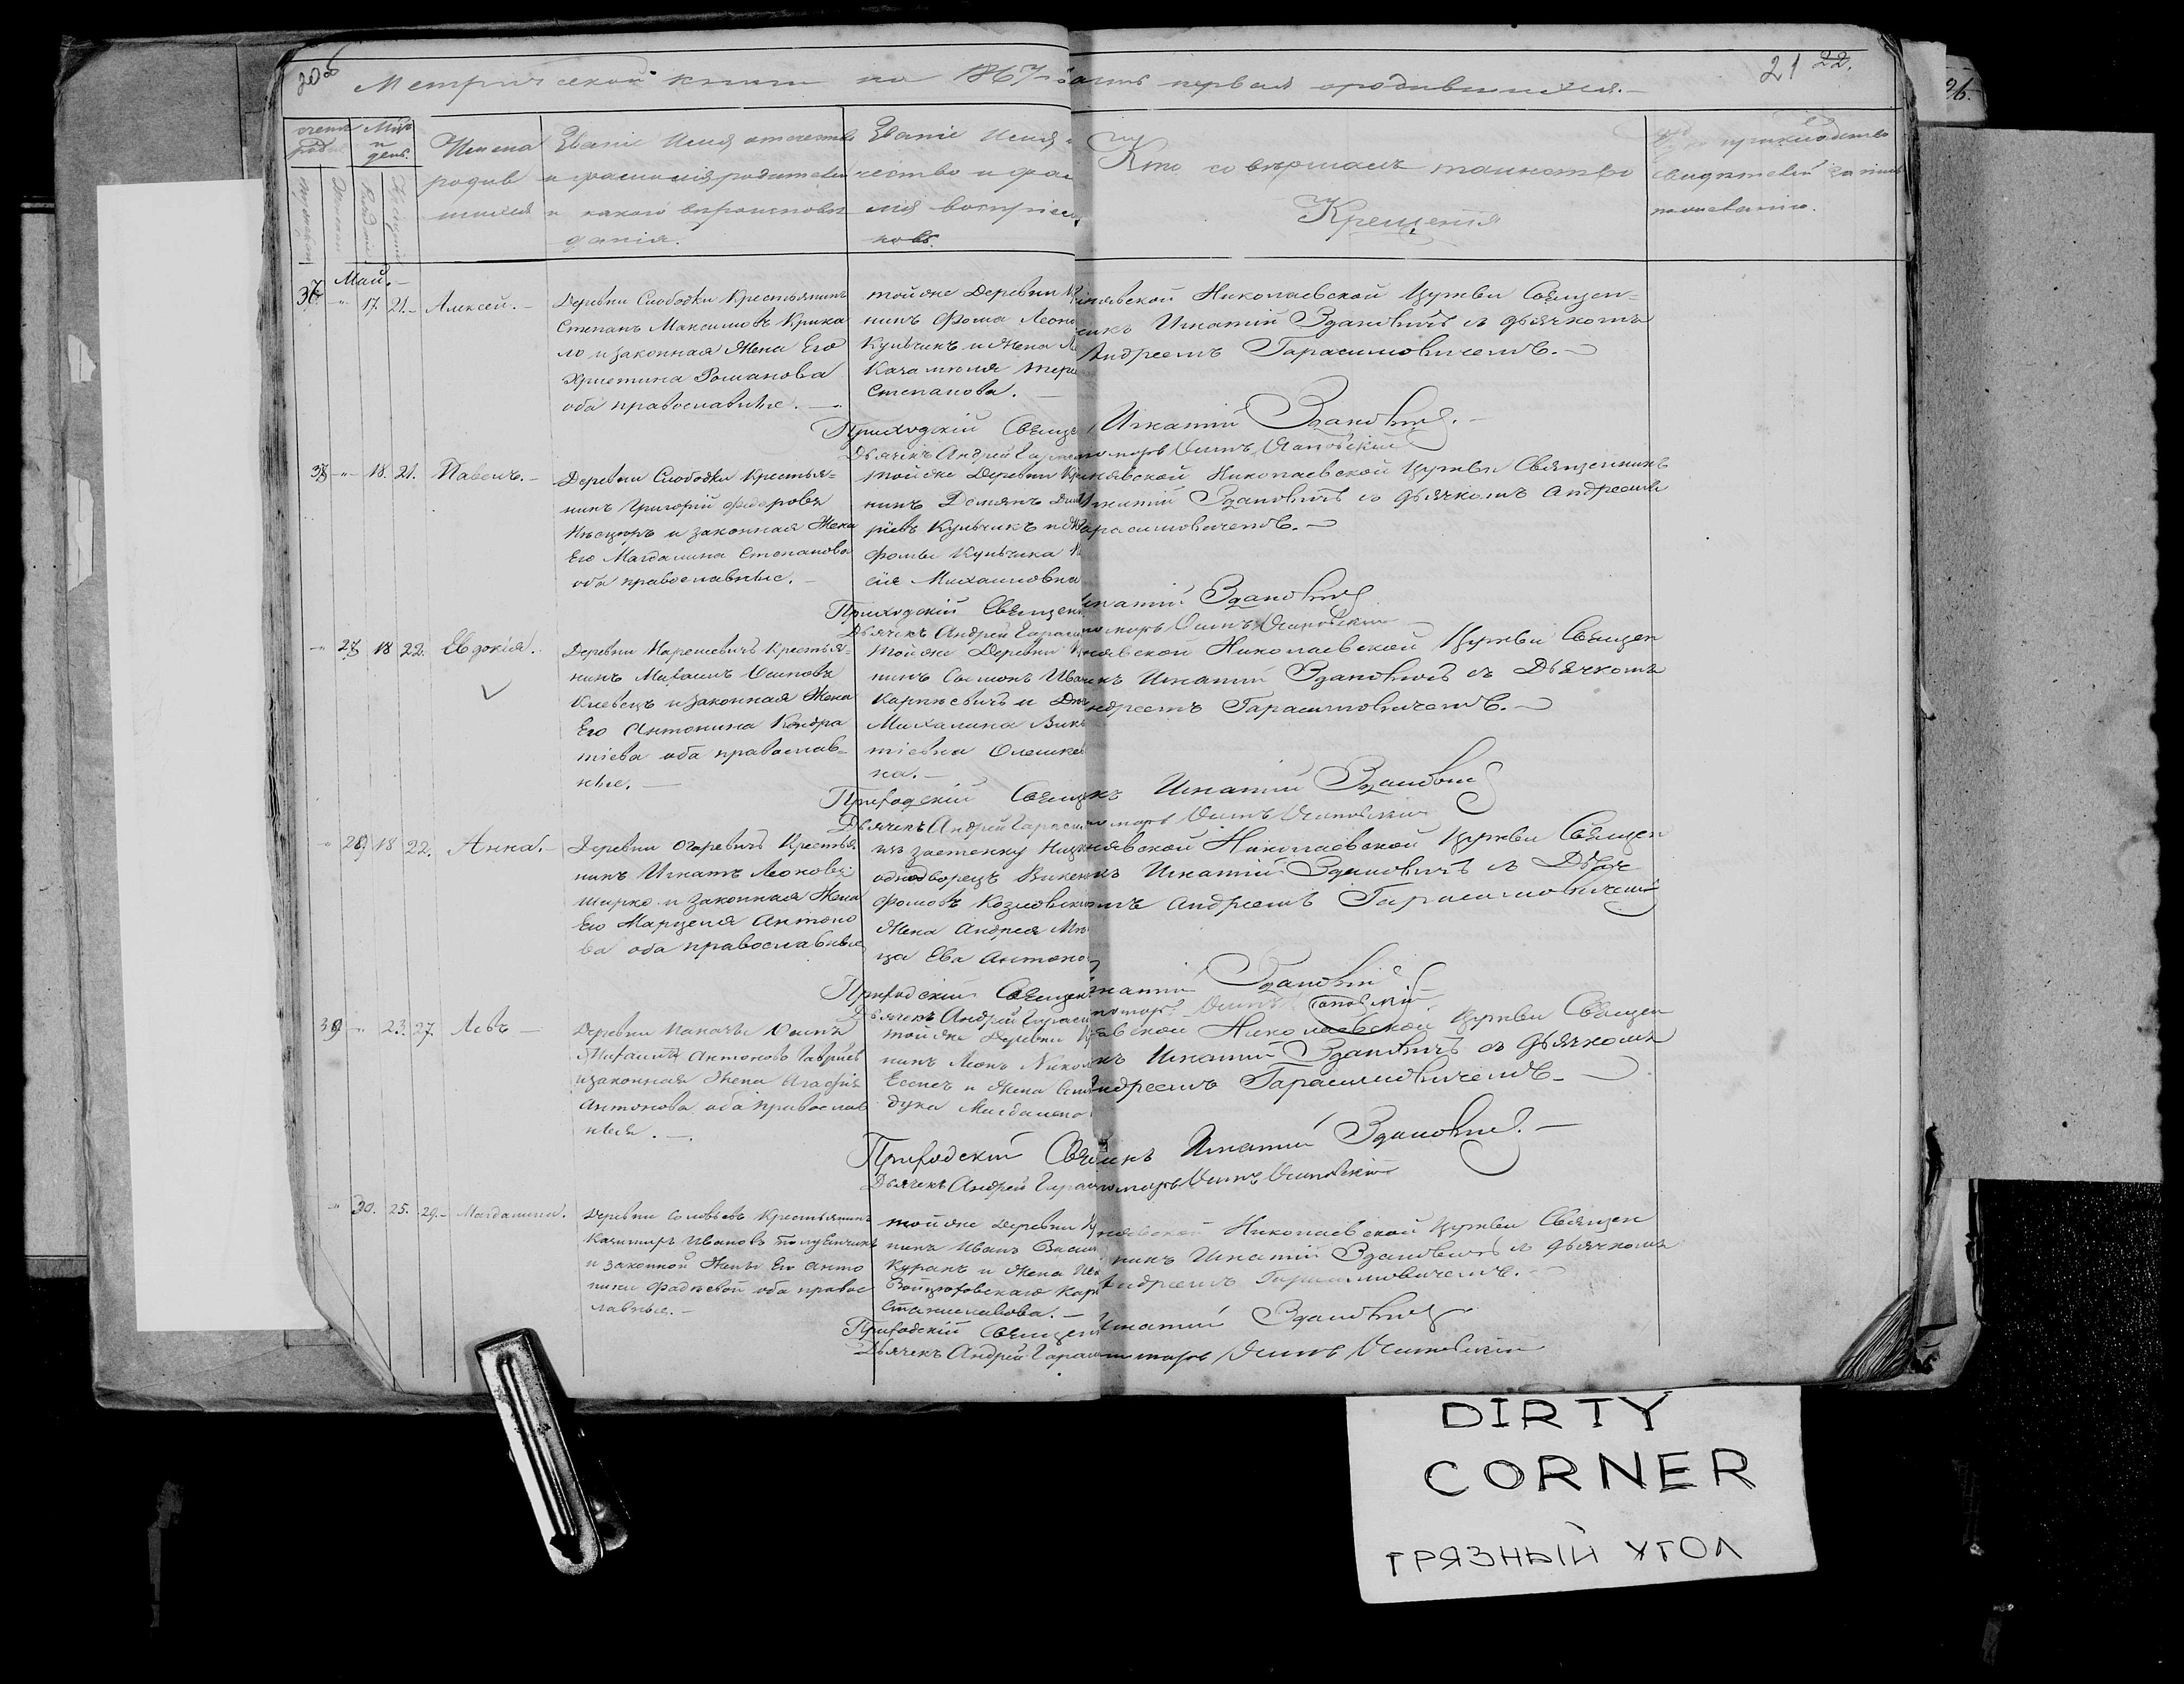 20об Метрической книги на 1867 часть первая о родившихся.
21 22.
26.
счетъ род. Мцъ и день.
Мужескъ Женскъ Рожденія Крещенія
Имена родив шихся
Званіе Имя отечество и фамилія родителей и какого вѣроисповѣ данія.
Званіе Имя о чество и фам лія воспріем ковъ.
Кто совѣршалъ таинство Крещенія
Рукоприкладство свидѣтелей записи по желанію.
Май.
37. 17. 21. Алексей.
Деревни Слободки Крестьянинъ
Степанъ Максимовъ Крика
ло и законная Жена Его
Христина Романова
оба православные.
тойже Деревни Кр
нинъ Фома Леон
Кульчикъ и Жена
Степанова.
Николаевской Цѳркви Священ=
никъ Игнатій Здановичъ съ дьячкомъ
Андреемъ Гарасимовичемъ.
Приходскій Свяще Игнатій Здановичъ.
Дьячекъ Андрей Гарас номарь Осипъ Осиповскій
38 18. 21. Павелъ.
Деревни Слободки Крестья=
нинъ Григорій Федоровъ
и законная Жена
Его Магдалина Степанова
оба православные.
тойже Деревни Кр
нинъ Демянъ
ріевъ Кульчикъ и
Фомы Кульчика
Михаиловна
Николаевской Цѳркви Священникъ
Игнатій Здановичъ съ дьячкомъ Андреемъ
Гарасимовичемъ.
Приходскій Священ Игнатій Здановичъ
Дьячекъ Андрей Гарас номарь Осипъ Осиповскій
28 18 22. Евдокія.
Деревни Нарешевичъ Крестья=
нинъ Михаилъ Осиповъ
Киевецъ и законная Жена
Его Антонина Кондра
тіева оба православ=
ные.
тойже Деревни
нинъ Сымонъ Ива
Карпѣевичъ и
Михалина Вик
тіевна Олешке
на.
Николаевской Цѳркви Священ
никъ Игнатій Здановичъ съ Дьячкомъ
Андреемъ Гарасимовичемъ.
Приходскій Священикъ Игнатій Здановичъ
Дьячекъ Андрей Гарасим номарь Осипъ Осиповскій
29 18 22. Анна.
Деревни Огаревичъ Крестья
нинъ Игнатъ Леоновъ
Ширко и законная Жена
Его Марцеля Антоно
ва оба православные
изъ застенку
однодворецъ Викен
Фомовъ Козловск
Жена Андрея
ца Ева Антоно
Николаевской Цѳркви Священ
никъ Игнатій Здановичъ съ Дьяч
комъ Андреемъ Гарасимовичемъ
Приходскій Священ Игнатій Здановичъ.
Дьячекъ Андрей Гарасим номарь Осипъ Осиповскій
39 23. 27. Левъ
Деревни
Антоновъ Гавриевъ
и законная Жена Агафія
Антонова оба православ
ныя.
тойже Деревни
нинъ Леонъ Никол
и Жена
дука Магдалено
Николаевской Цѳркви Священ
никъ Игнатій Здановичъ съ дьячкомъ
Андреемъ Гарасимовичемъ.
Приходскій Священикъ Игнатій Здановичъ.
Дьячекъ Андрей Гарас номарь Осипъ Осиповскій
30. 25. 29. Магдалина.
Деревни Соловьевъ Крестьянинъ
Казимиръ Ивановъ
и законной Жены Его Анто
нины Фадѣевой оба правос
лавные.
тойже Деревни
нинъ Иванъ Васил
Куранъ и Жена
Станиславова.
Николаевской Цѳркви Священ
никъ Игнатій Здановичъ съ дьячкомъ
Андреемъ Гарасимовичемъ.
Приходскій Священ Игнатій Здановичъ
Дьячекъ Андрей Гарас номарь Осипъ Осиповскій
DIRTY
CORNER
ГРЯЗНЫЙ УГОЛ